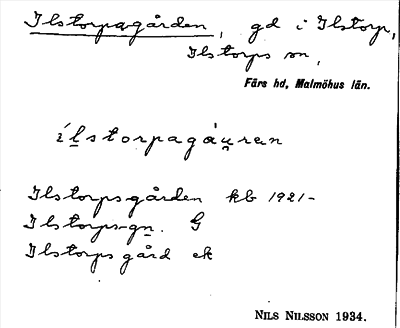 Ilstorpagården, gd i Ilstorp,
Ilstorps sn,
Färs hd, Malmöhus län.
ílstorpagáu̯ran
Ilstorpsgården kb 1921-
Ilstorps-gn. G
Ilstorps gård ek
NILS NILSSON 1934.